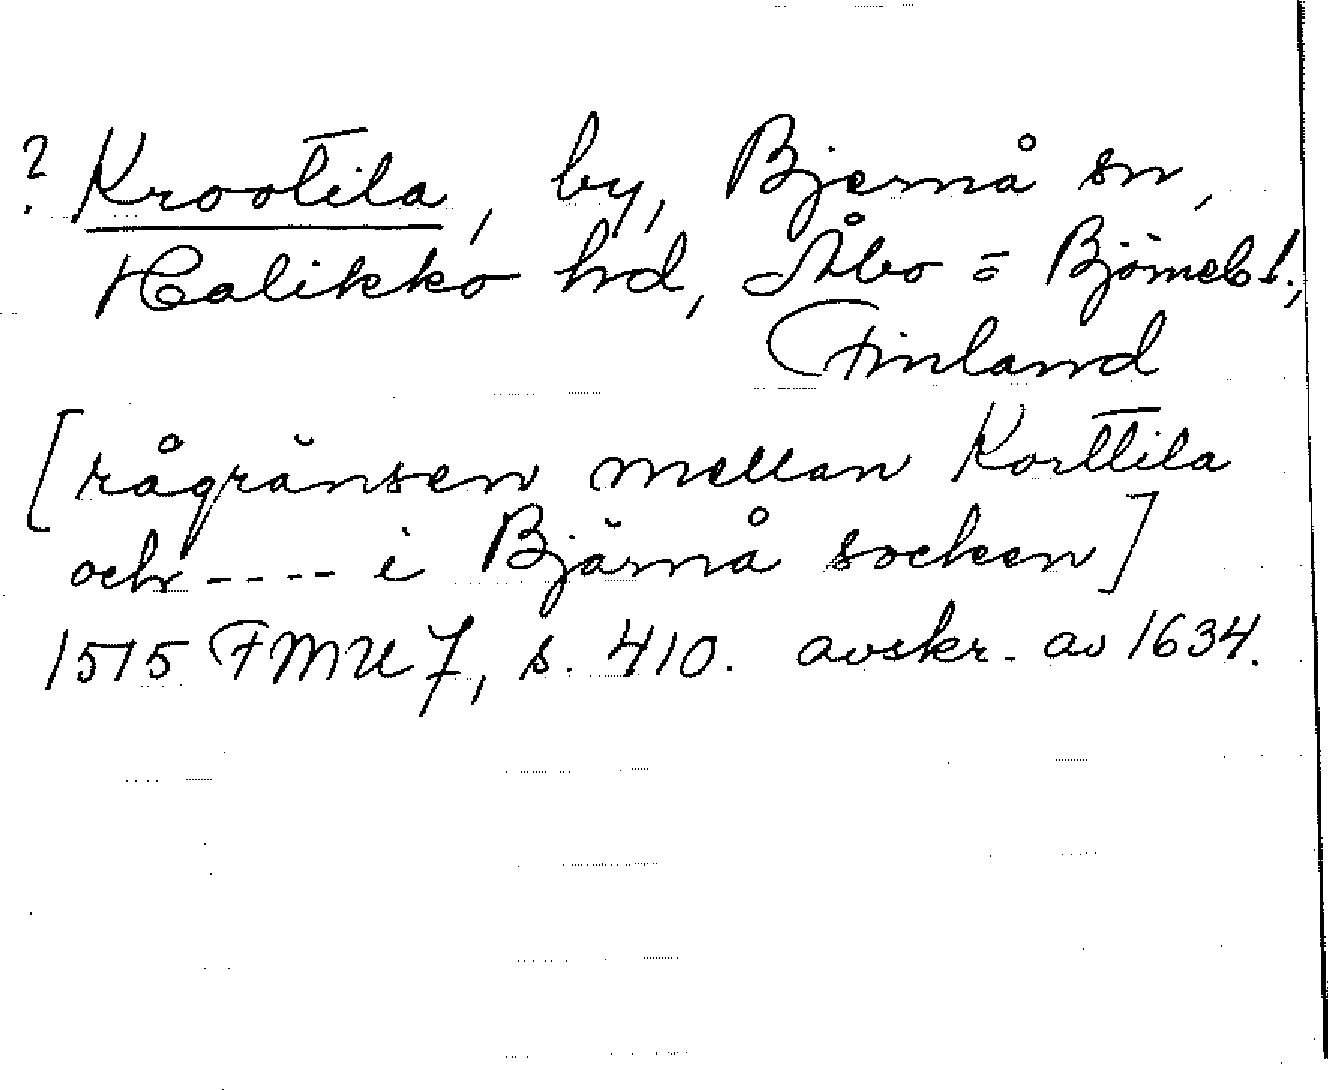 ? Krootila, by, Bjernå sn,
Halikko hd, Åbo = Björneb!.,
Finland
[rågränsen mellan Korttila
och ---- i Bjärnå socken]
1515 FMU 7, s. 410. avskr. av 1634.